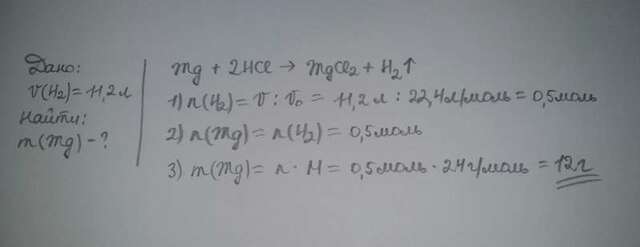 Дано:
V(H₂)=11,2 л
Найти:
m(Mg)-?
Mg + 2HCl → MgCl₂ + H₂↑
1) n(H₂)= V : V₀ = 11,2 л : 22,4л/моль = 0,5моль
2) n(Mg)= n(H₂) = 0,5моль
3) m(Mg)= n · M = 0,5моль · 24г/моль = 12г